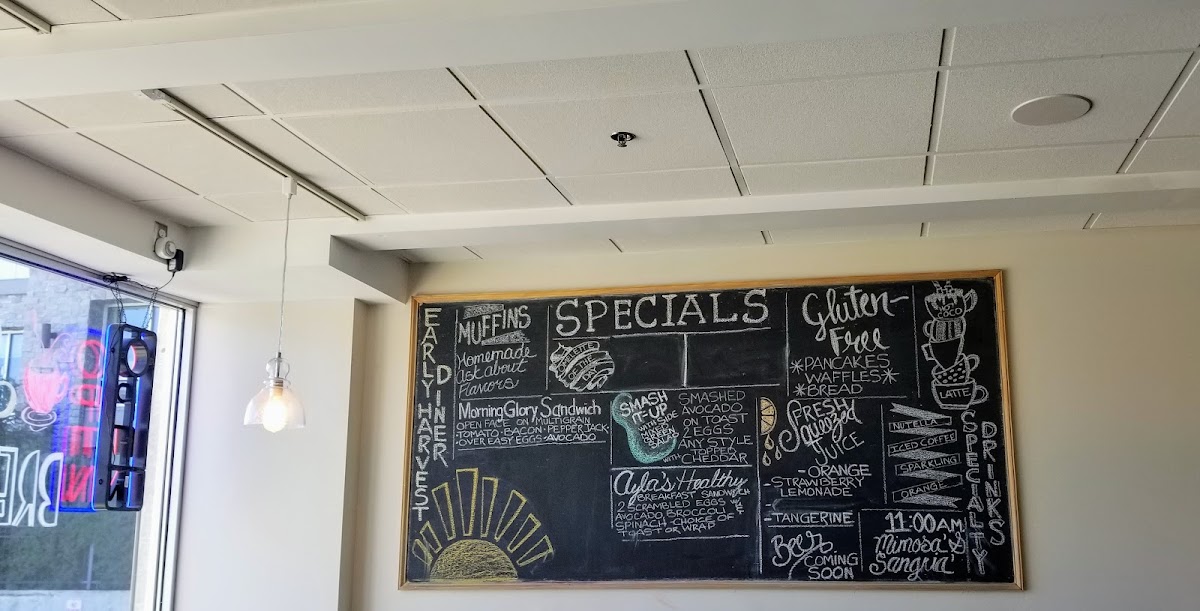 EARLY HARVEST
DINER
MUFFINS
Homemade
ask about
Flavors
SPECIALS
OMELETTE
OF THE
Morning Glory Sandwich
OPEN FACE ON MULTIGRAIN
-TOMATO-BACON-PEPPER JACK-
-OVER EASY EGGS-AVOCADO
SMASH
IT UP
WITH SIDE
GARDEN
SALAD
SMASHED
AVOCADO
ON TOAST
2 EGGS
ANY STYLE
TOPPED
WITH CHEDDAR
Ayla's Healthy
BREAKFAST SANDWICH
2 SCRAMBLED EGGS WITH
AVOCADO, BROCCOLI
SPINACH CHOICE OF
TOAST OR WRAP
Gluten-
Free
*PANCAKES
WAFFLES*
*BREAD
FRESH
Squeezed
JUICE
-ORANGE
-STRAWBERRY
LEMONADE
-TANGERINE
Beer
COMING
SOON
HOT
COCO
LATTE
NUTELLA
ICED COFFEE
SPARKLING
ORANGE
11:00AM
Mimosa's
Sangria'
SPECIALTY
DRINKS
OPEN